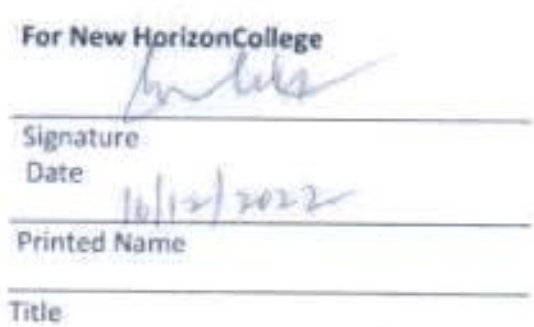 For New HorizonCollege
Signature
Date
16/12/2022
Printed Name
Title